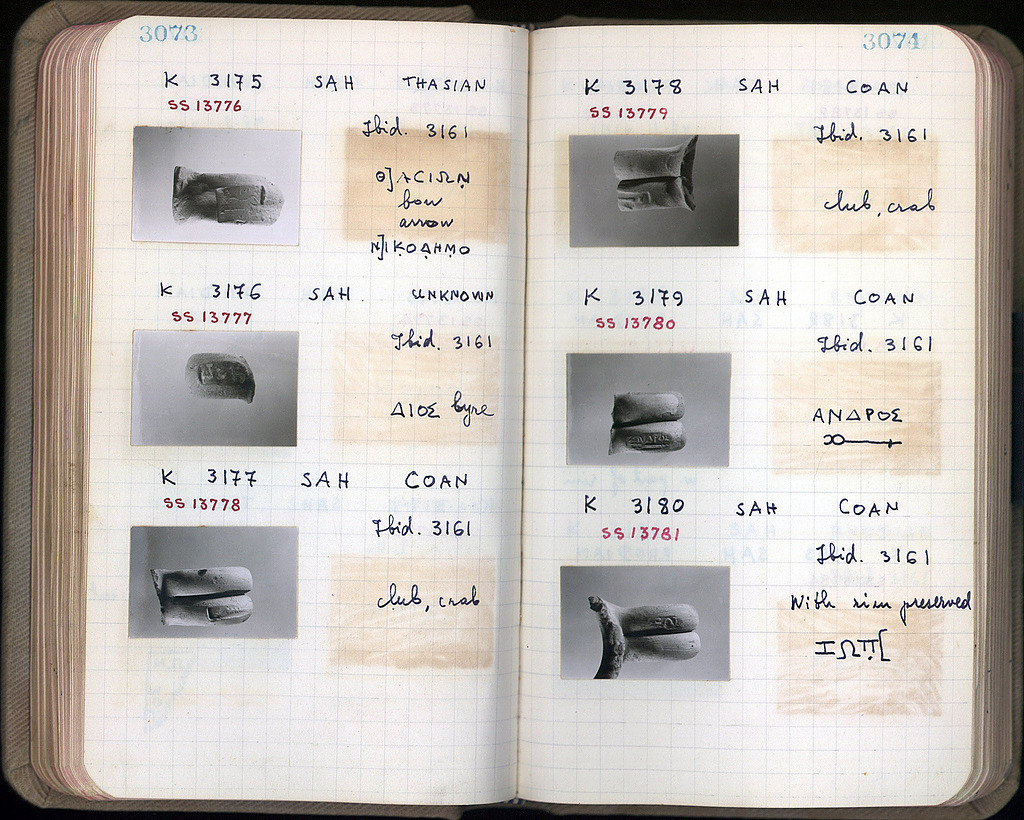 3073
K 3175 SAH THASIAN
SS 13776
Ibid. 3161
Θ]ΑΣΙΩΝ
bow
arrow
Ν]ΙΚΟΔΗΜΟ
K 3176 SAH UNKNOWN
SS 13777
Ibid. 3161
ΔΙΟΣ lyre
K 3177 SAH COAN
SS 13778
Ibid. 3161
club, crab
3074
K 3178 SAH COAN
SS 13779
Ibid. 3161
club, crab
K 3179 SAH COAN
SS 13780
Ibid. 3161
ΑΝΔΡΟΣ
K 3180 SAH COAN
SS 13781
Ibid. 3161
With rim preserved
ΙΩΠ[